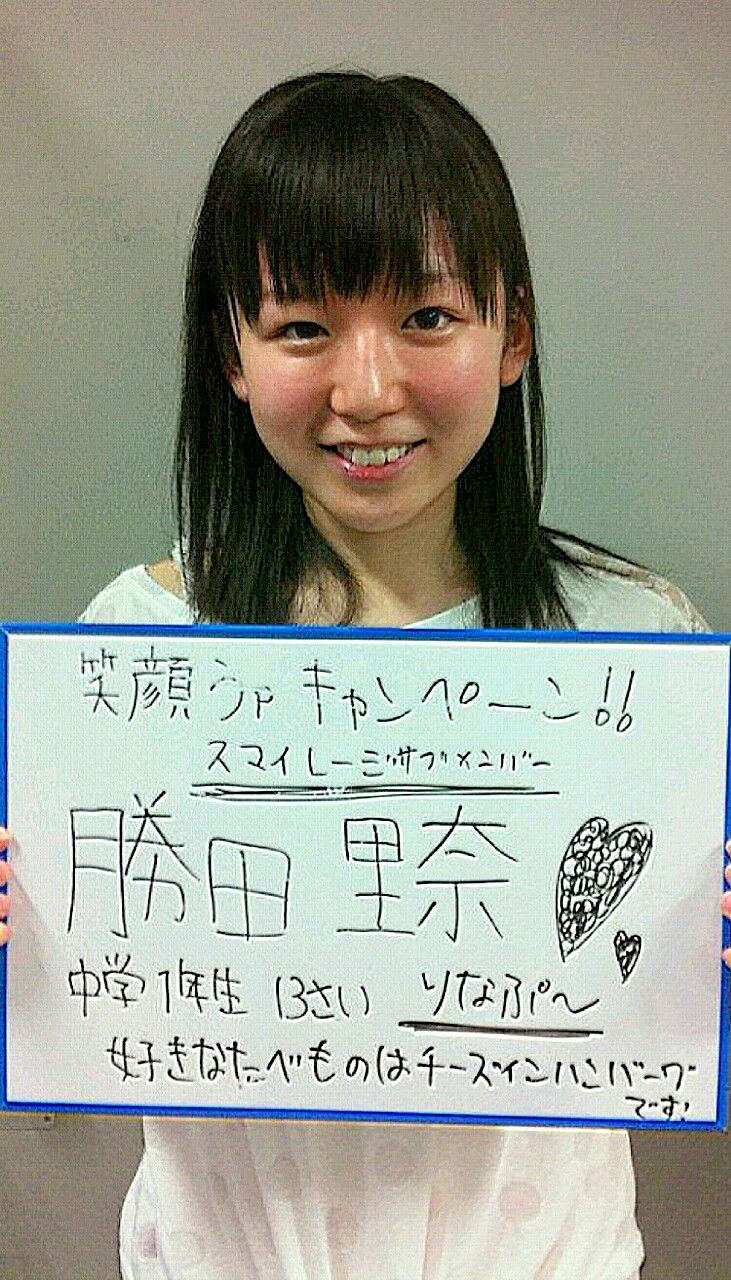 笑顔うpキャンペーン!!
スマイレージサブメンバー
勝田 里奈
中学1年生 13さい りなぷ〜
好きなたべものはチーズインハンバーグ
です!